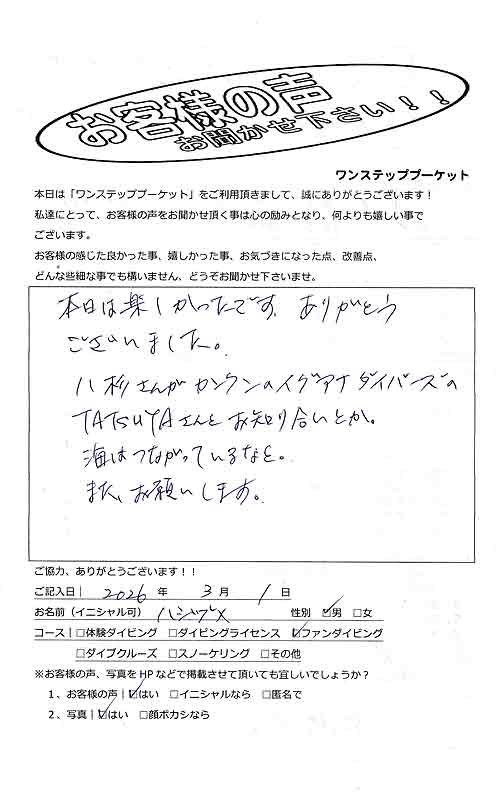 お客様の声
お聞かせ下さい！！
ワンステッププーケット
本日は「ワンステッププーケット」をご利用頂きまして、誠にありがとうございます！
私達にとって、お客様の声をお聞かせ頂く事は心の励みとなり、何よりも嬉しい事で
ございます。
お客様の感じた良かった事、嬉しかった事、お気づきになった点、改善点、
どんな些細な事でも構いません、どうぞお聞かせ下さいませ。
本日は楽しかったです。ありがとう
ございました。
八杉さんがカンクンのイグアナダイバーズの
TATSUYAさんとお知り合いとか。
海はつながっているなと。
また、お願いします。
ご協力、ありがとうございます！！
ご記入日｜2026 年 3 月 1 日
お名前（イニシャル可） 性別 ☑男 □女
コース｜□体験ダイビング □ダイビングライセンス ☑ファンダイビング
□ダイブクルーズ □スノーケリング □その他
※お客様の声、写真をHPなどで掲載させて頂いても宜しいでしょうか？
1、お客様の声｜☑はい □イニシャルなら □匿名で
2、写真｜☑はい □顔ボカシなら